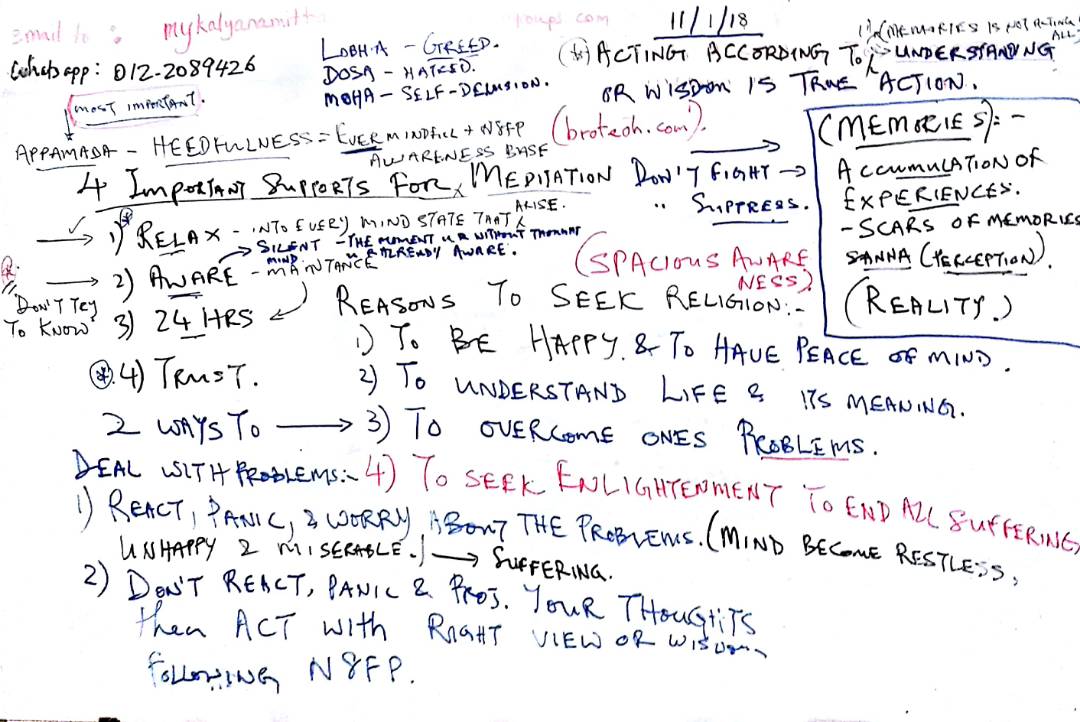 Email to : mykalyanamitt oups.com
11/1/18
(MEMORIES IS NOT ACTING AT ALL)
Whatsapp: 012-2089426
LOBHA - GREED.
DOSA - HATRED.
MOHA - SELF-DELUSION.
(*) ACTING ACCORDING TO UNDERSTANDING
OR WISDOM IS TRUE ACTION.
MOST IMPORTANT.
APPAMADA - HEEDFULNESS = EVER MINDFULL + N8FP
AWARENESS BASE
(broteoh.com).
4 IMPORTANT SUPPORTS FOR MEDITATION
DON'T FIGHT →
" SUPPRESS.
(MEMORIES):-
ACCUMULATION OF
EXPERIENCES.
- SCARS OF MEMORIES
SANNA (PERCEPTION).
(REALITY.)
→ 1) RELAX - INTO EVERY MIND STATE THAT
ARISE.
→ SILENT - THE MOMENT U R WITHOUT THOUGHT
MIND. U R ALREADY AWARE.
→ 2) AWARE - MAINTANCE
(SPACIOUS AWARE
NESS)
"DON'T TRY
TO KNOW"
3) 24 HRS
4) TRUST.
REASONS TO SEEK RELIGION:-
1) TO BE HAPPY & TO HAVE PEACE OF MIND.
2) TO UNDERSTAND LIFE & ITS MEANING.
3) TO OVERCOME ONES PROBLEMS.
4) TO SEEK ENLIGHTENMENT TO END ALL SUFFERING
2 WAYS TO →
DEAL WITH PROBLEMS:-
1) REACT, PANIC, & WORRY ABOUT THE PROBLEMS. (MIND BECOME RESTLESS,
UNHAPPY & MISERABLE.) → SUFFERING.
2) DON'T REACT, PANIC & PROJ. YOUR THOUGHTS
then ACT WITH RIGHT VIEW OR WISDOM
FOLLOWING N8FP.